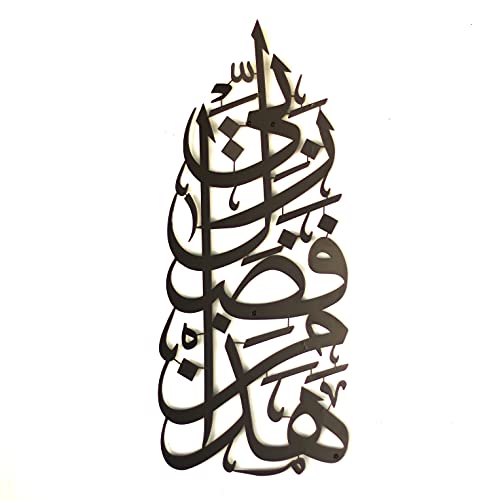 هَٰذَا مِن فَضْلِ رَبِّي